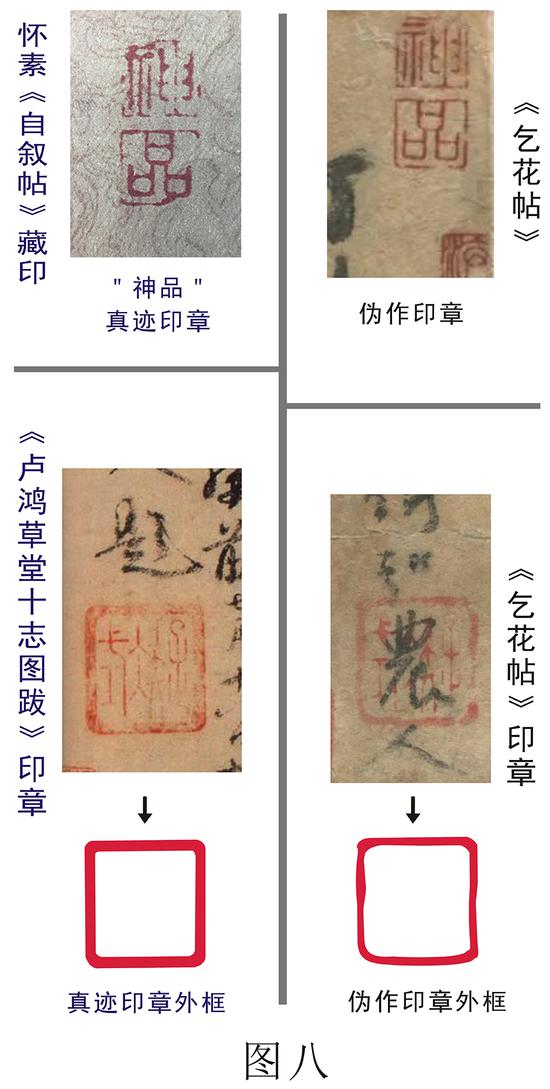 怀素《自叙帖》藏印
神
品
"神品"
真迹印章
神
品
《乞花帖》
伪作印章
《卢鸿草堂十志图跋》印章
题
真迹印章外框
農
人
《乞花帖》印章
伪作印章外框
图八